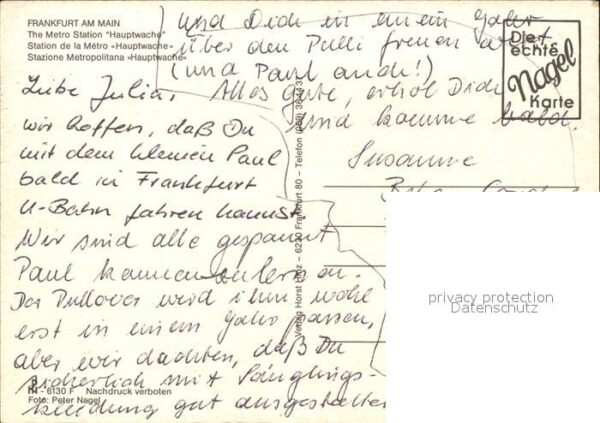 FRANKFURT AM MAIN
The Metro Station "Hauptwache"
Station de la Métro «Hauptwache»
Stazione Metropolitana «Hauptwache»
Liebe Julia,
wir hoffen, daß Du
mit dem kleinen Paul
bald in Frankfurt
U-Bahn fahren kannst.
Wir sind alle gespannt
Paul kennenzulernen.
Der Pullover wird ihm wohl
erst in einem Jahr passen,
aber wir dachten, daß Du
sicherlich mit Säuglings-
kleidung gut ausgestattet
und Dich in einem Jahr
über den Pulli freuen
(und Paul auch!)
Alles Gute, erhol Dich
und komme bald.
Susanne
Die
echte
Nagel
Karte
Verlag Horst - 6230 Frankfurt 80 – Telefon
- 6130 F Nachdruck verboten
Foto: Peter Nagel
privacy protection
Datenschutz